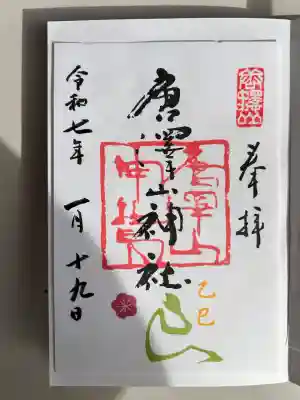 唐澤山
奉拝
唐澤山神社
唐澤山
神社
乙巳
令和七年 一月 十九日